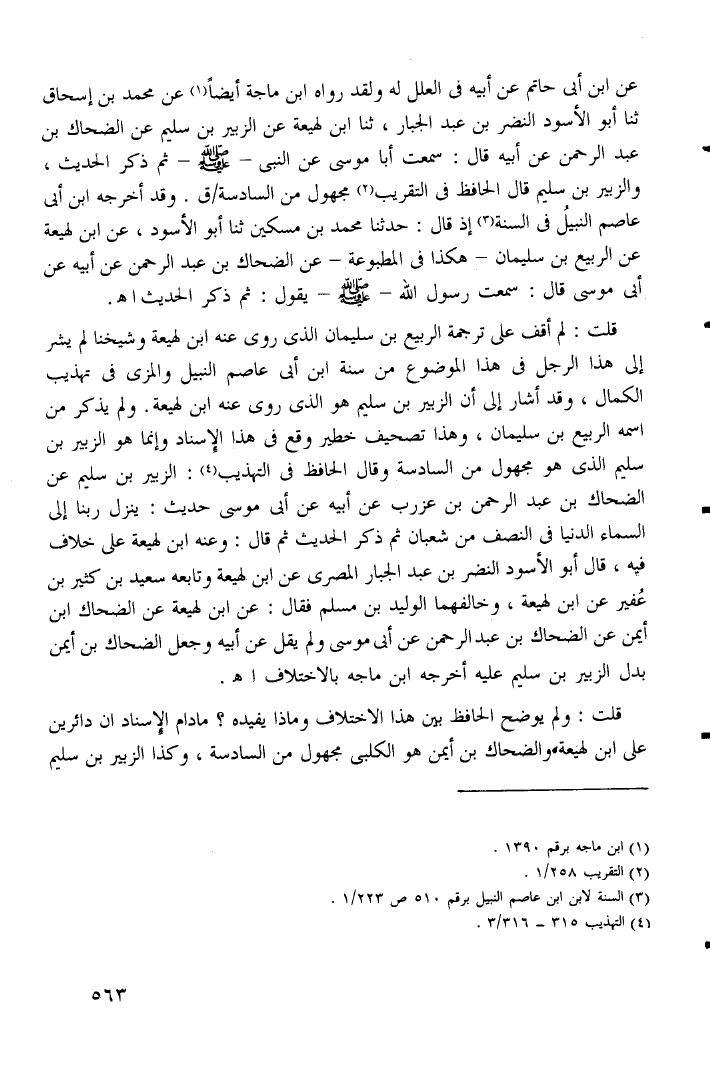 عن ابن أبى حاتم عن أبيه فى العلل له ولقد رواه ابن ماجة أيضاً(١) عن محمد بن إسحاق
ثنا أبو الأسود النضر بن عبد الجبار ، ثنا ابن لهيعة عن الزبير بن سليم عن الضحاك بن
عبد الرحمن عن أبيه قال : سمعت أبا موسى عن النبى – ﷺ – ثم ذكر الحديث ،
والزبير بن سليم قال الحافظ فى التقريب(٢) مجهول من السادسة/ق . وقد أخرجه ابن أبى
عاصم النبيلُ فى السنة(٣) إذ قال : حدثنا محمد بن مسكين ثنا أبو الأسود ، عن ابن لهيعة
عن الربيع بن سليمان – هكذا فى المطبوعة – عن الضحاك بن عبد الرحمن عن أبيه عن
أبى موسى قال : سمعت رسول الله – ﷺ – يقول : ثم ذكر الحديث ا هـ.
قلت : لم أقف على ترجمة الربيع بن سليمان الذى روى عنه ابن لهيعة وشيخنا لم يشر
إلى هذا الرجل فى هذا الموضوع من سنة ابن أبى عاصم النبيل والمزى فى تهذيب
الكمال ، وقد أشار إلى أن الزبير بن سليم هو الذى روى عنه ابن لهيعة. ولم يذكر من
اسمه الربيع بن سليمان ، وهذا تصحيف خطير وقع فى هذا الإسناد وإنما هو الزبير بن
سليم الذى هو مجهول من السادسة وقال الحافظ فى التهذيب(٤) : الزبير بن سليم عن
الضحاك بن عبد الرحمن بن عزرب عن أبيه عن أبى موسى حديث : ينزل ربنا إلى
السماء الدنيا فى النصف من شعبان ثم ذكر الحديث ثم قال : وعنه ابن لهيعة على خلاف
فيه ، قال أبو الأسود النضر بن عبد الجبار المصرى عن ابن لهيعة وتابعه سعيد بن كثير بن
عُفير عن ابن لهيعة ، وخالفهما الوليد بن مسلم فقال : عن ابن لهيعة عن الضحاك ابن
أيمن عن الضحاك بن عبد الرحمن عن أبى موسى ولم يقل عن أبيه وجعل الضحاك بن أيمن
بدل الزبير بن سليم عليه أخرجه ابن ماجه بالاختلاف ا هـ .
قلت : ولم يوضح الحافظ بين هذا الاختلاف وماذا يفيده ؟ مادام الإسناد ان دائرين
على ابن لهيعة، والضحاك بن أيمن هو الكلبى مجهول من السادسة ، وكذا الزبير بن سليم
(١) ابن ماجه برقم ١٣٩٠ .
(٢) التقريب ١/٢٥٨ .
(٣) السنة لابن ابن عاصم النبيل برقم ٥١٠ ص ١/٢٢٣ .
(٤) التهذيب ٣١٥ – ٣/٣١٦ .
٥٦٣